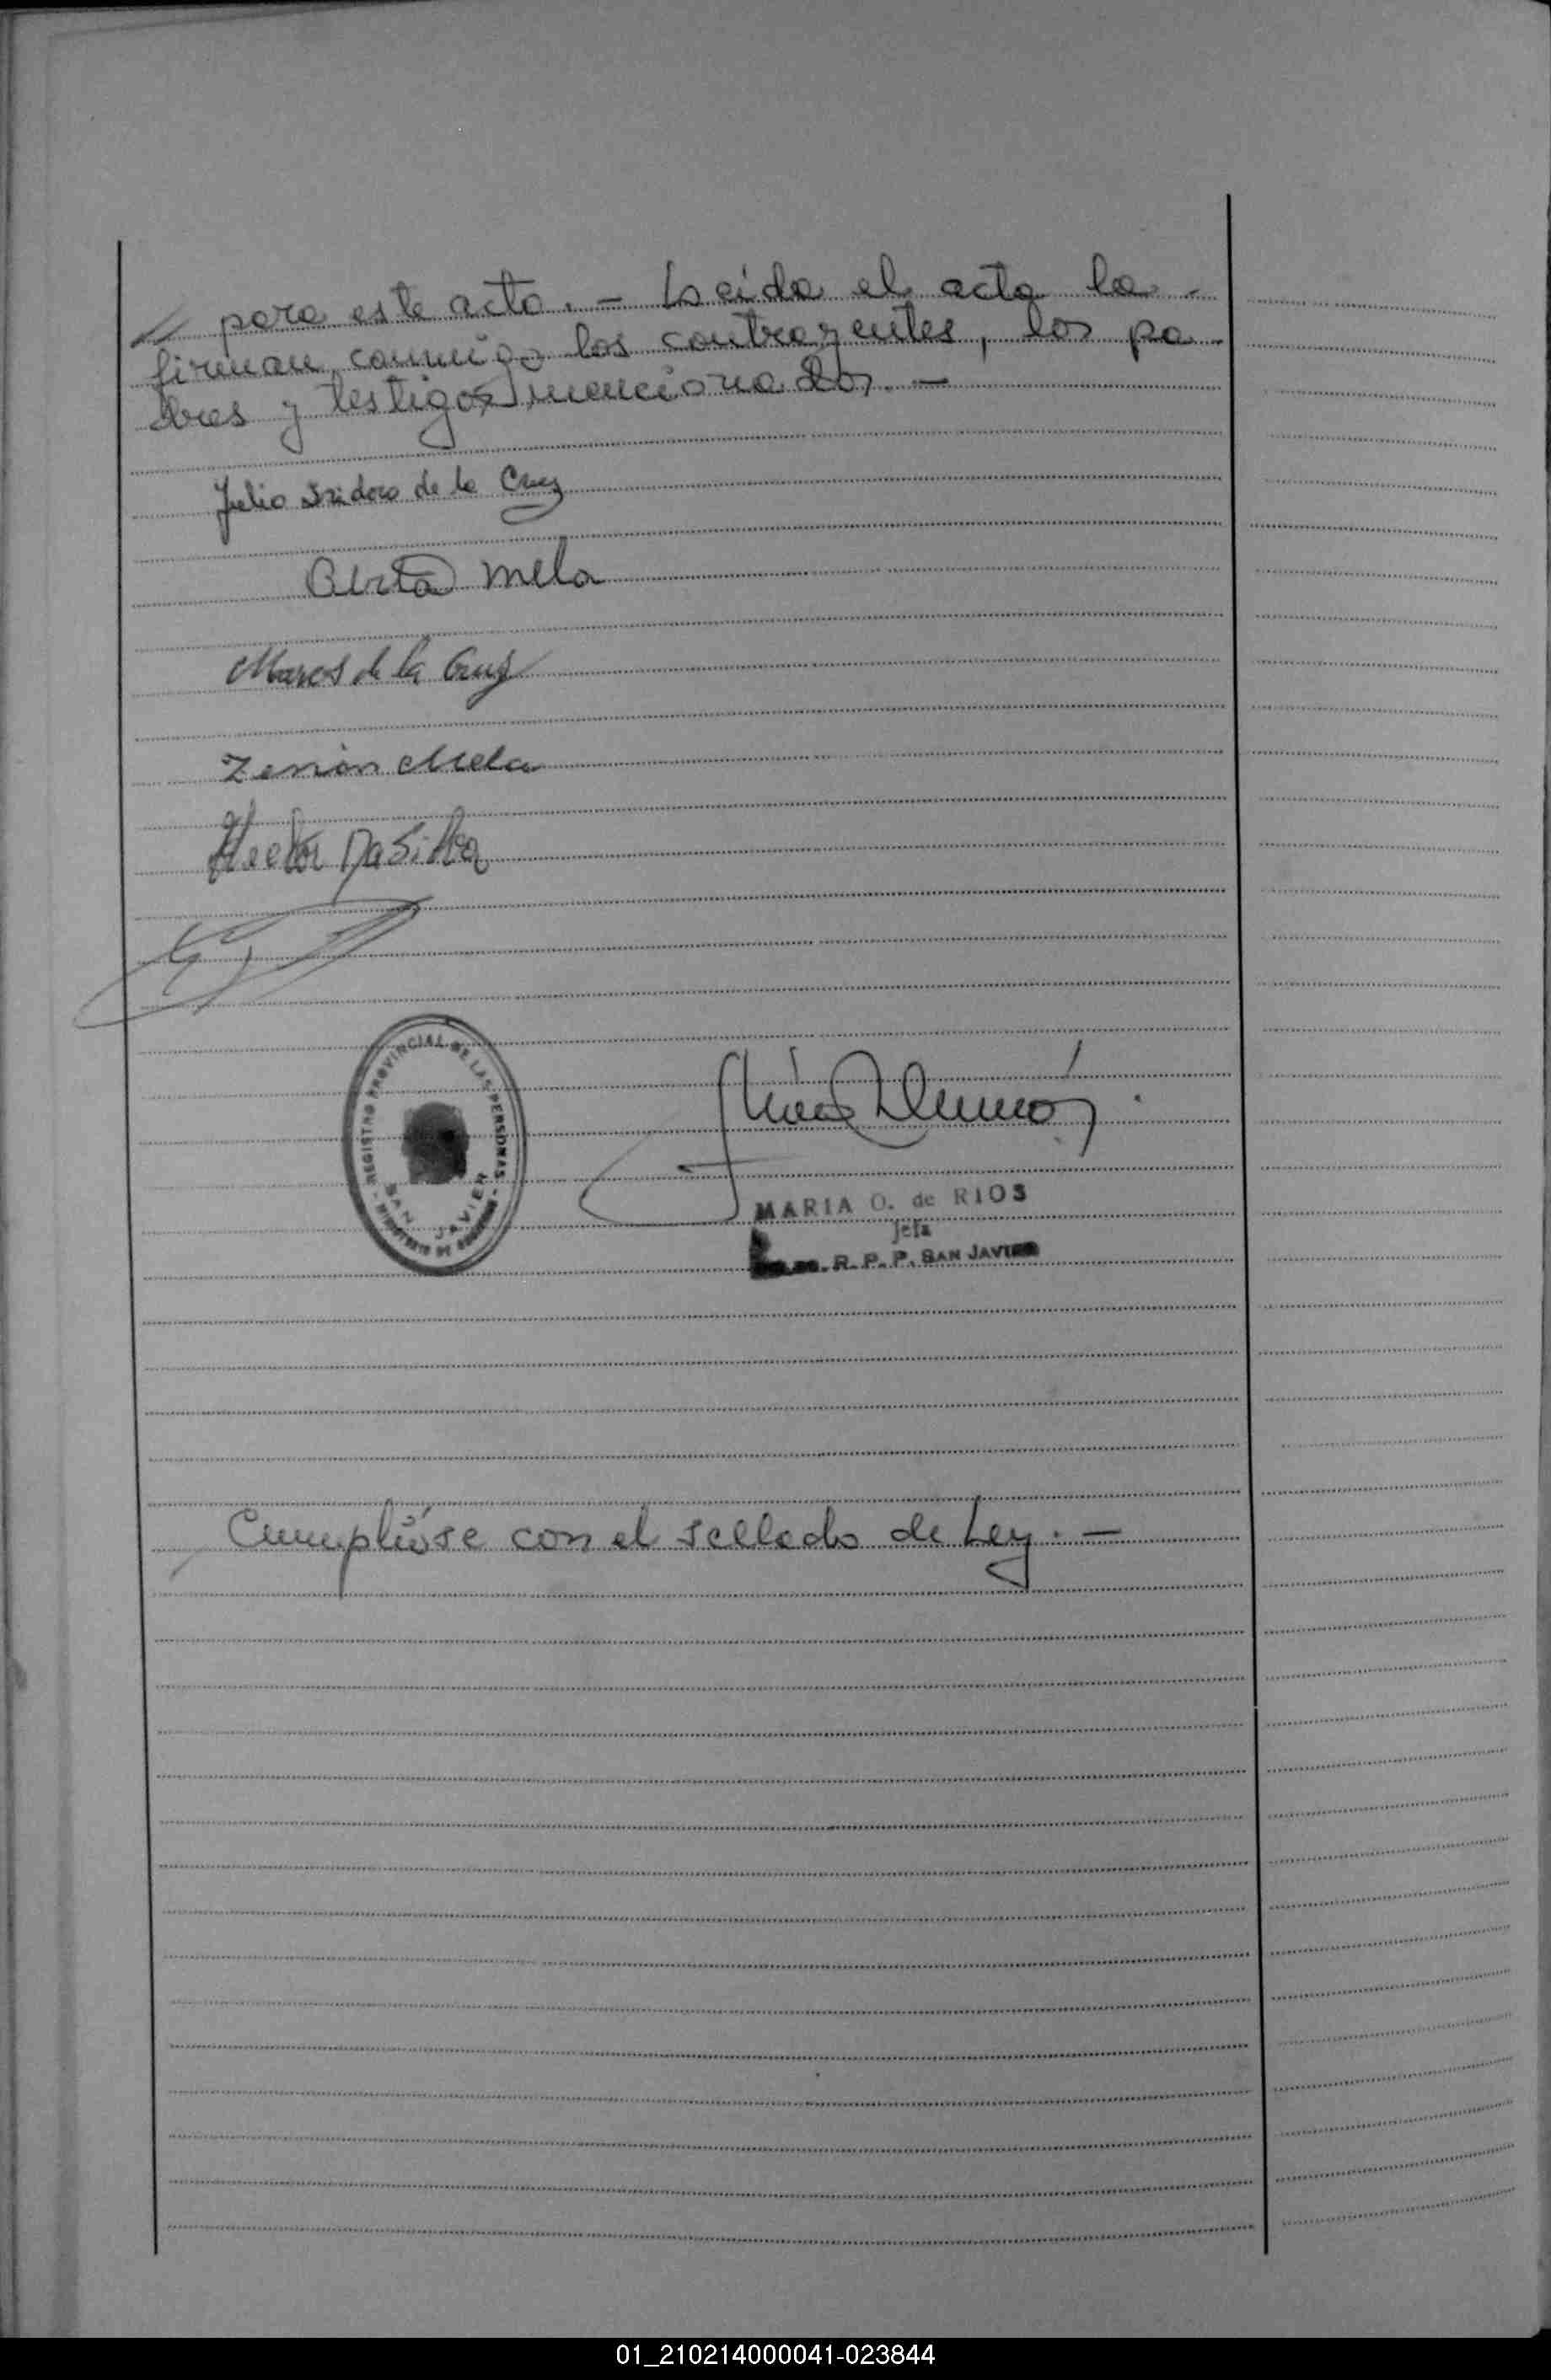 para este acto. - Leida el acta la -
firman conmigo los contrayentes, los pa
dres y testigos mencionados. -
Julio Isidoro de la Cruz
Berta Mela
Marcos de la Cruz
Zenón Mela
Hector Da Silva
REGISTRO PROVINCIAL DE LAS PERSONAS
SAN JAVIER
- MINISTERIO DE GOBIERNO -
MARIA O. de RIOS
Jefa
R. P. P. SAN JAVIER
Cumplióse con el sellado de Ley. -
01_210214000041-023844